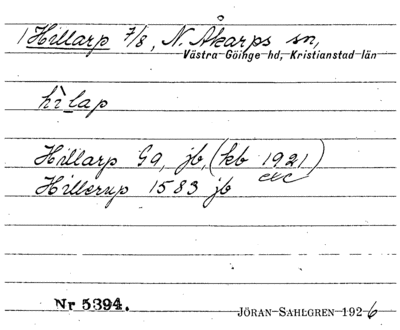 Hillarp 7/8, N. Åkarps sn,
Västra Göinge hd, Kristianstad län
hìlap
Hillarp Ga, jb, (kb 1921)
etc
Hillerup 1583 jb
Nr 5394.
JÖRAN SAHLGREN 1926